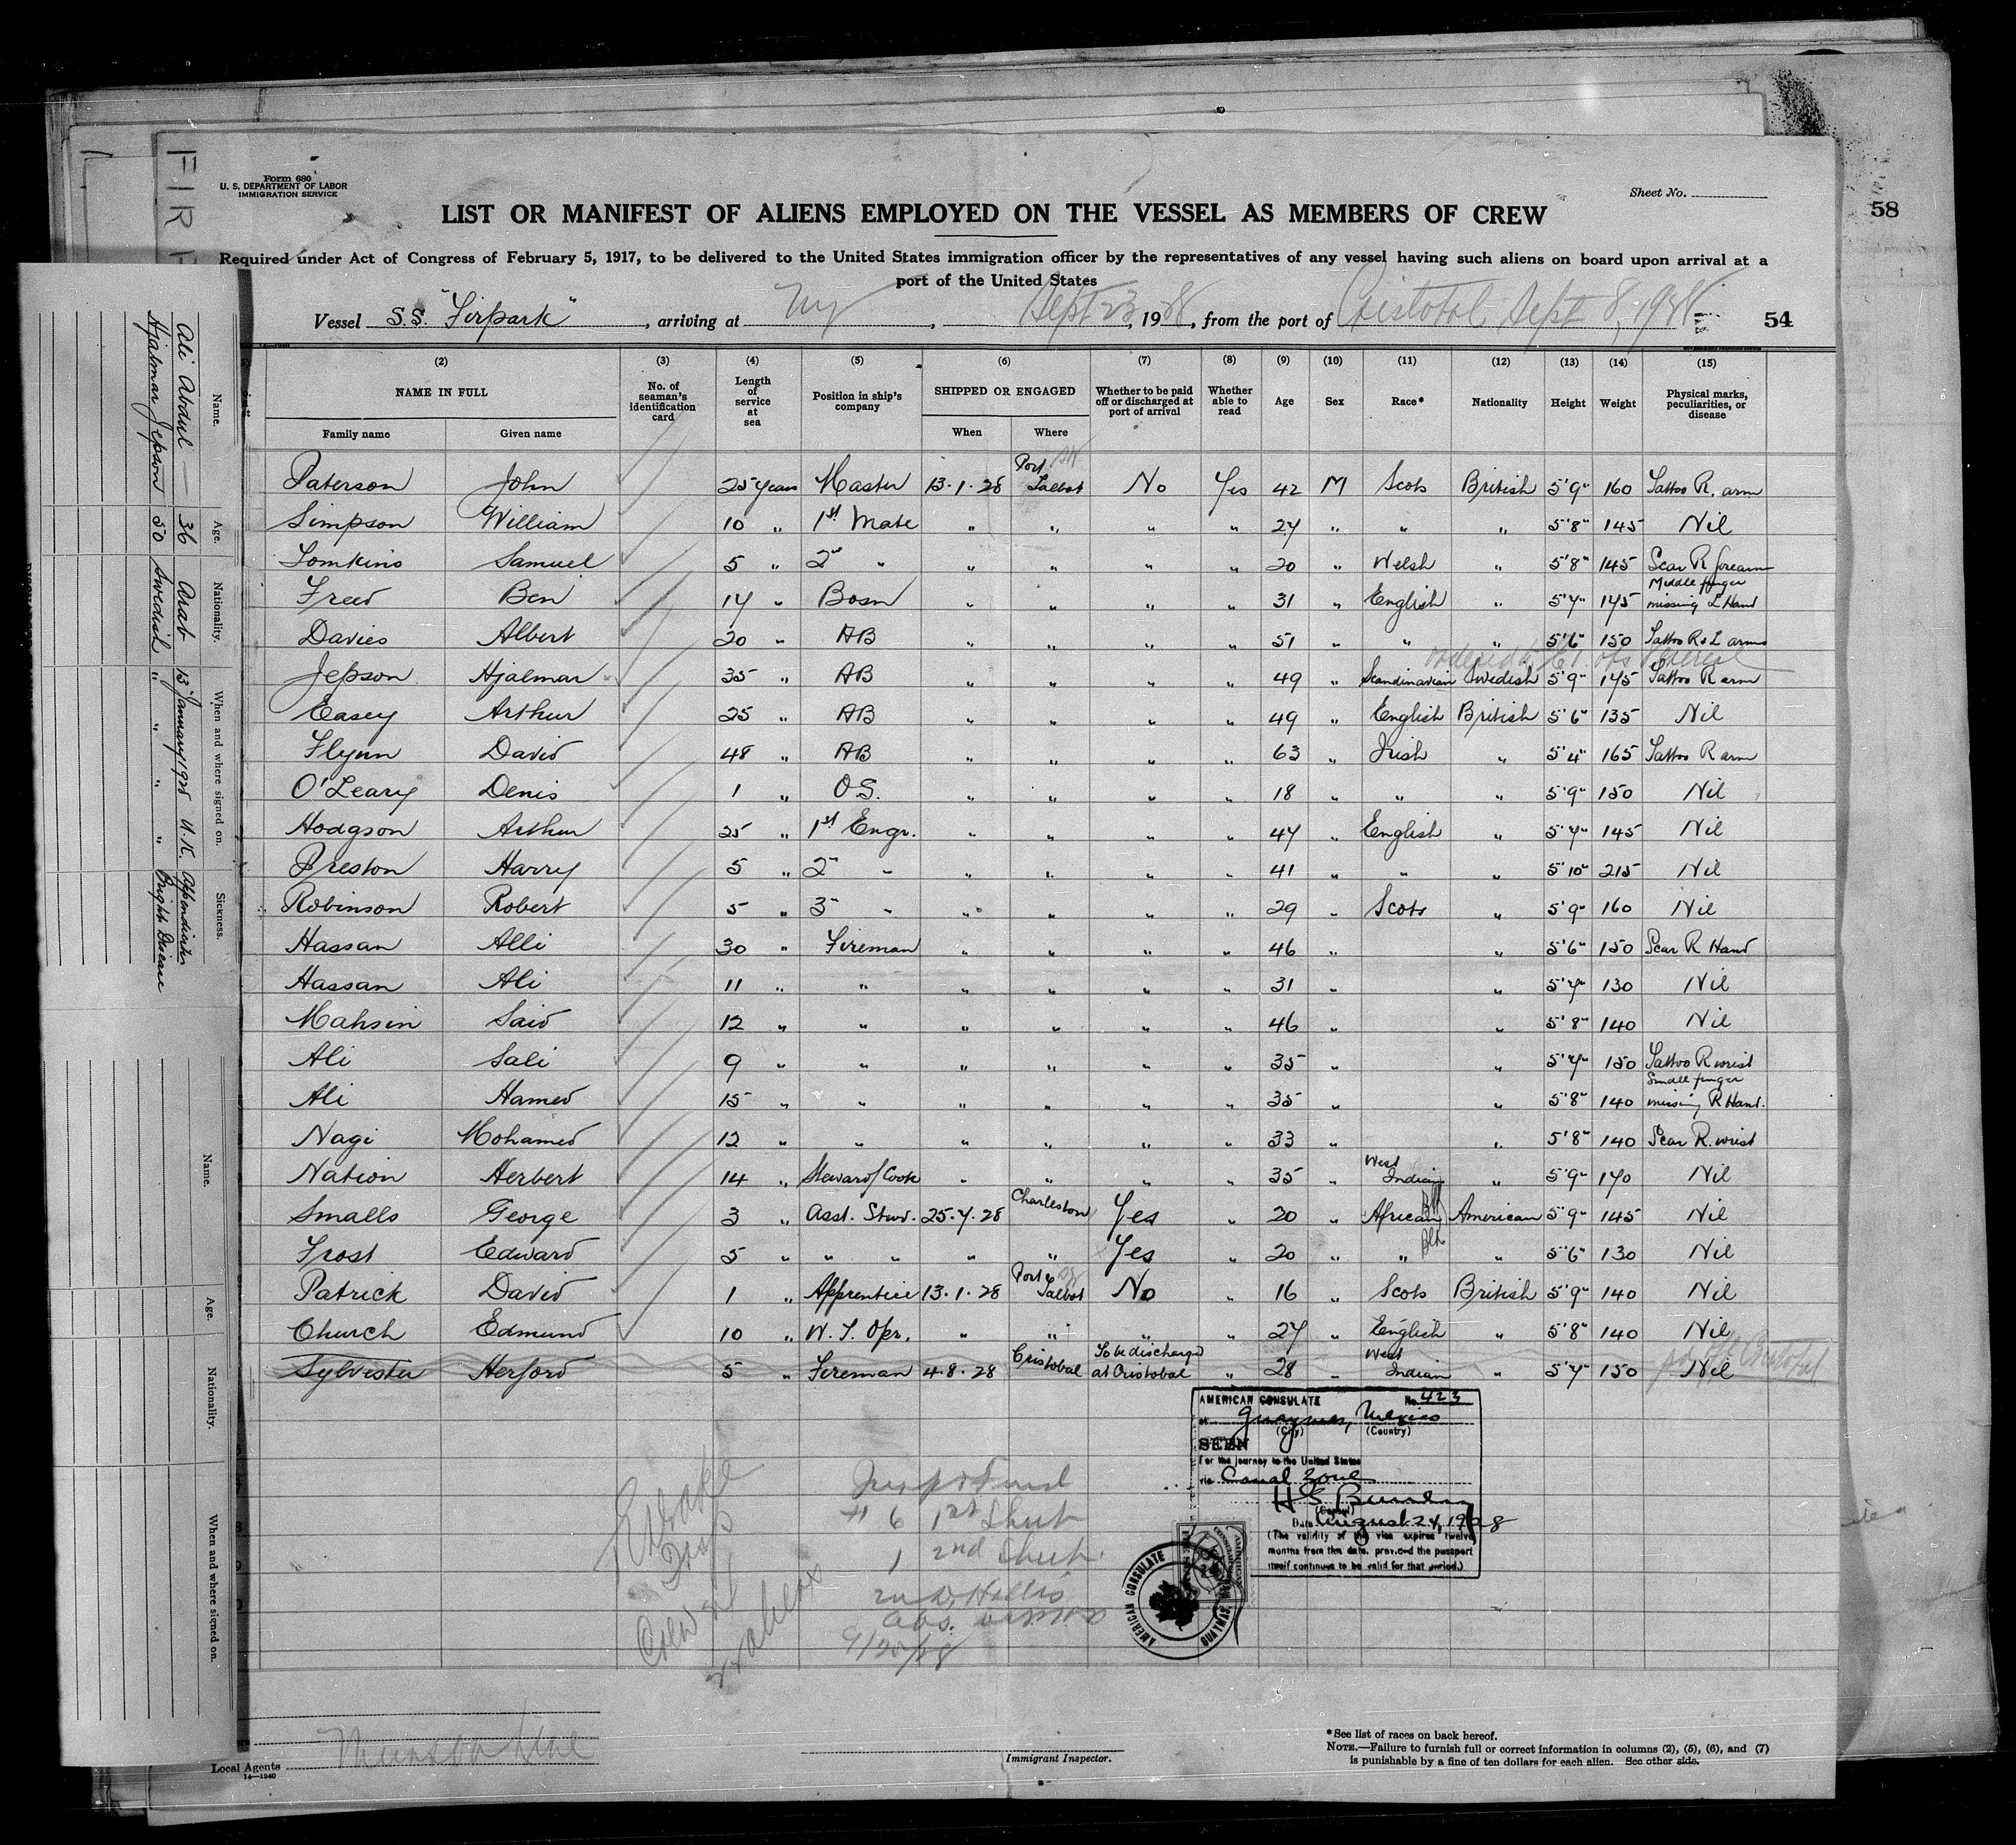 Form 680
U. S. DEPARTMENT OF LABOR
IMMIGRATION SERVICE
Sheet No.
58
LIST OR MANIFEST OF ALIENS EMPLOYED ON THE VESSEL AS MEMBERS OF CREW
Required under Act of Congress of February 5, 1917, to be delivered to the United States immigration officer by the representatives of any vessel having such aliens on board upon arrival at a
port of the United States
Vessel S.S. "Firpark", arriving at NY, Sept 23, 1928, from the port of Cristobal Sept 8, 1928 54
(2) (3) (4) (5) (6) (7) (8) (9) (10) (11) (12) (13) (14) (15)
NAME IN FULL No. of seaman's identification card Length of service at sea Position in ship's company SHIPPED OR ENGAGED Whether to be paid off or discharged at port of arrival Whether able to read Age Sex Race* Nationality Height Weight Physical marks, peculiarities, or disease
Family name Given name When Where
Paterson John 25 years Master 13.1.28 Port Talbot No Yes 42 M Scots British 5'9" 160 Tattoo R. arm
Simpson William 10 " 1st Mate " " " " 27 " " " 5'8" 145 Nil
Tomkins Samuel 5 " 2" " " " " " 20 " Welsh " 5'8" 145 Scar R forearm
Freed Ben 14 " Bosn " " " " 31 " English " 5'7" 145 Middle finger missing L Hand
Davies Albert 20 " AB " " " " 51 " " " 5'6" 150 Tattoo R & L arms
Jepson Hjalmar 35 " AB " " " " 49 " Scandinavian Swedish 5'9" 175 Tattoo R arm
Easey Arthur 25 " AB " " " " 49 " English British 5'6" 135 Nil
Flynn David 48 " AB " " " " 63 " Irish " 5'4" 165 Tattoo R arm
O'Leary Denis 1 " O.S. " " " " 18 " " " 5'9" 150 Nil
Hodgson Arthur 25 " 1st Engr. " " " " 47 " English " 5'7" 145 Nil
Preston Harry 5 " 2" " " " " " 41 " " " 5'10" 215 Nil
Robinson Robert 5 " 3" " " " " " 29 " Scots " 5'9" 160 Nil
Hassan Alli 30 " Fireman " " " " 46 " " 5'6" 150 Scar R Hand
Hassan Ali 11 " " " " " " 31 " " 5'7" 130 Nil
Mahsin Said 12 " " " " " " 46 " " 5'8" 140 Nil
Ali Sali 9 " " " " " " 35 " " 5'7" 150 Tattoo R wrist
Ali Hamed 15 " " " " " " 35 " " 5'8" 140 Small finger missing R Hand.
Nagi Mohamed 12 " " " " " " 33 " " 5'8" 140 Scar R. wrist
Nation Herbert 14 " Steward/Cook " " " " 35 " West Indian " 5'9" 170 Nil
Smalls George 3 " Asst. Stwd. 25.7.28 Charleston Yes " 20 " African Blk American 5'9" 145 Nil
Frost Edward 5 " " " " " Yes " 20 " " Blk " 5'6" 130 Nil
Patrick David 1 " Apprentice 13.1.28 Port Talbot No " 16 " Scots British 5'9" 140 Nil
Church Edmund 10 " W. T. Opr. " " " " 27 " English " 5'8" 140 Nil
Sylvester Herford 5 " Fireman 4.8.28 Cristobal To be discharged at Cristobal " 28 " West Indian " 5'7" 150 Nil
AMERICAN CONSULATE No. 423
at Guaymas, Mexico
(City) (Country)
SEEN
For the journey to the United States
via Canal Zone
(Consul)
Date August 24, 1928
(The validity of this visa expires twelve
months from this date, provided the passport
itself continues to be valid for that period.)
AMERICAN CONSULATE
6 1st Sheet
1 2nd Sheet
Munson Line
Local Agents
14—1240
Immigrant Inspector.
*See list of races on back hereof.
NOTE.—Failure to furnish full or correct information in columns (2), (5), (6), and (7)
is punishable by a fine of ten dollars for each alien. See other side.
Name. Age. Nationality. When and where signed on. Sickness.
Ali Abdul 36 Arab 13 January 1928 U.K. Appendicitis
Hjalmar Jepson 50 Swedish " " " " Bright Disease
Name. Age. Nationality. When and where signed on.